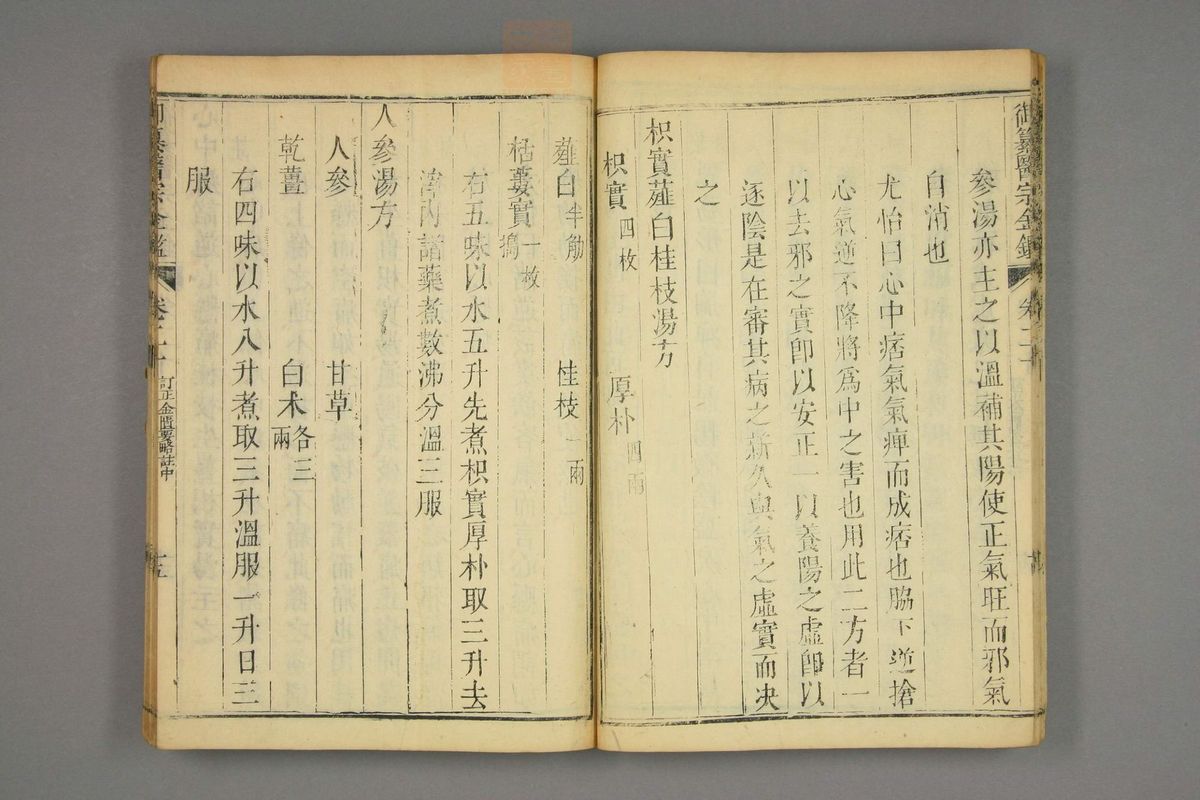 御纂醫宗金鑑 卷二十
參湯亦主之以溫補其陽使正氣旺而邪氣
自消也
尤怡曰心中痞氣氣痺而成痞也脇下逆搶
心氣逆不降將爲中之害也用此二方者一
以去邪之實卽以安正一以養陽之虛卽以
逐陰是在審其病之新久與氣之虛實而决
之
枳實薤白桂枝湯方
枳實四枚 厚朴四兩
薤白半觔 桂枝一兩
栝蔞實一枚搗
右五味以水五升先煮枳實厚朴取三升去
滓內諸藥煮數沸分溫三服
人參湯方
人參 甘草
乾薑 白术各三兩
右四味以水八升煮取三升溫服一升日三
服
醫宗金鑑 卷二十 訂正金匱要略註中